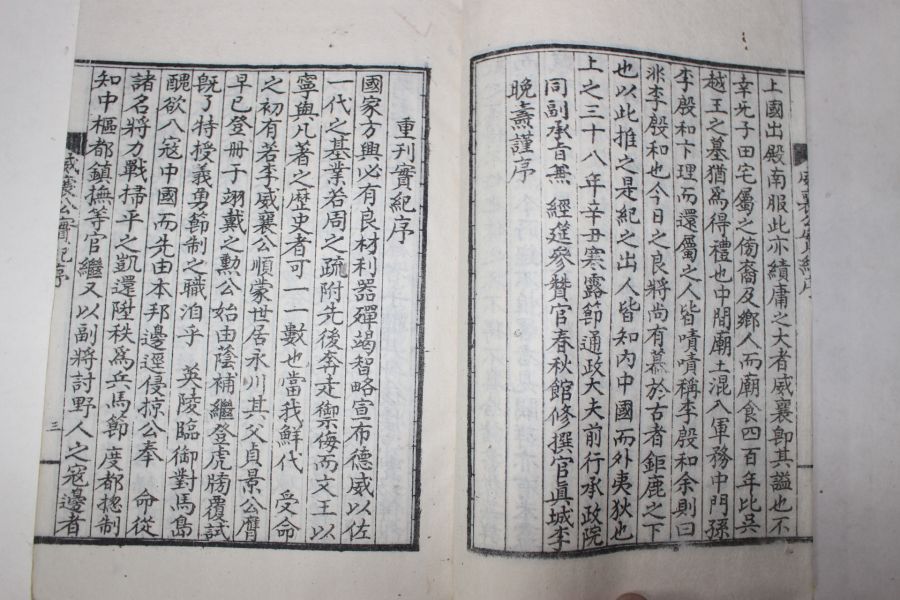 上國出殿南服此亦績庸之大者威襄卽其謚也不
幸旡子田宅屬之傍裔及鄉人而廟食四百年比吳
越王之墓猶爲得禮也中間廟土混入軍務中門孫
李殷和卞理而還屬之人皆嘖嘖稱李殷和余則曰
非李殷和也今日之良將尚有慕於古者鉅鹿之下
也以此推之是紀之出人皆知內中國而外夷狄也
上之三十八年辛丑寒露節通政大夫前行承政院
同副承旨兼 經筵參贊官春秋館修撰官眞城李
晚燾謹序
重刊實紀序
國家方興必有良材利器殫竭智略宣布德威以佐
一代之基業若周之疏附先後奔走禦侮而文王以
寧與凡著之歷史者可一一數也當我鮮代 受命
之初有若李威襄公順蒙世居永川其父貞景公膺
早已登冊于翊戴之勳公始由蔭補繼登虎牓覆試
旣了特授義勇節制之職洎乎 英陵臨御對馬島
醜欲入寇中國而先由本邦邊逕侵掠公奉 命從
諸名將力戰掃平之凱還陞秩爲兵馬節度都摠制
知中樞都鎭撫等官繼又以副將討野人之寇邊者
威襄公實紀序
三